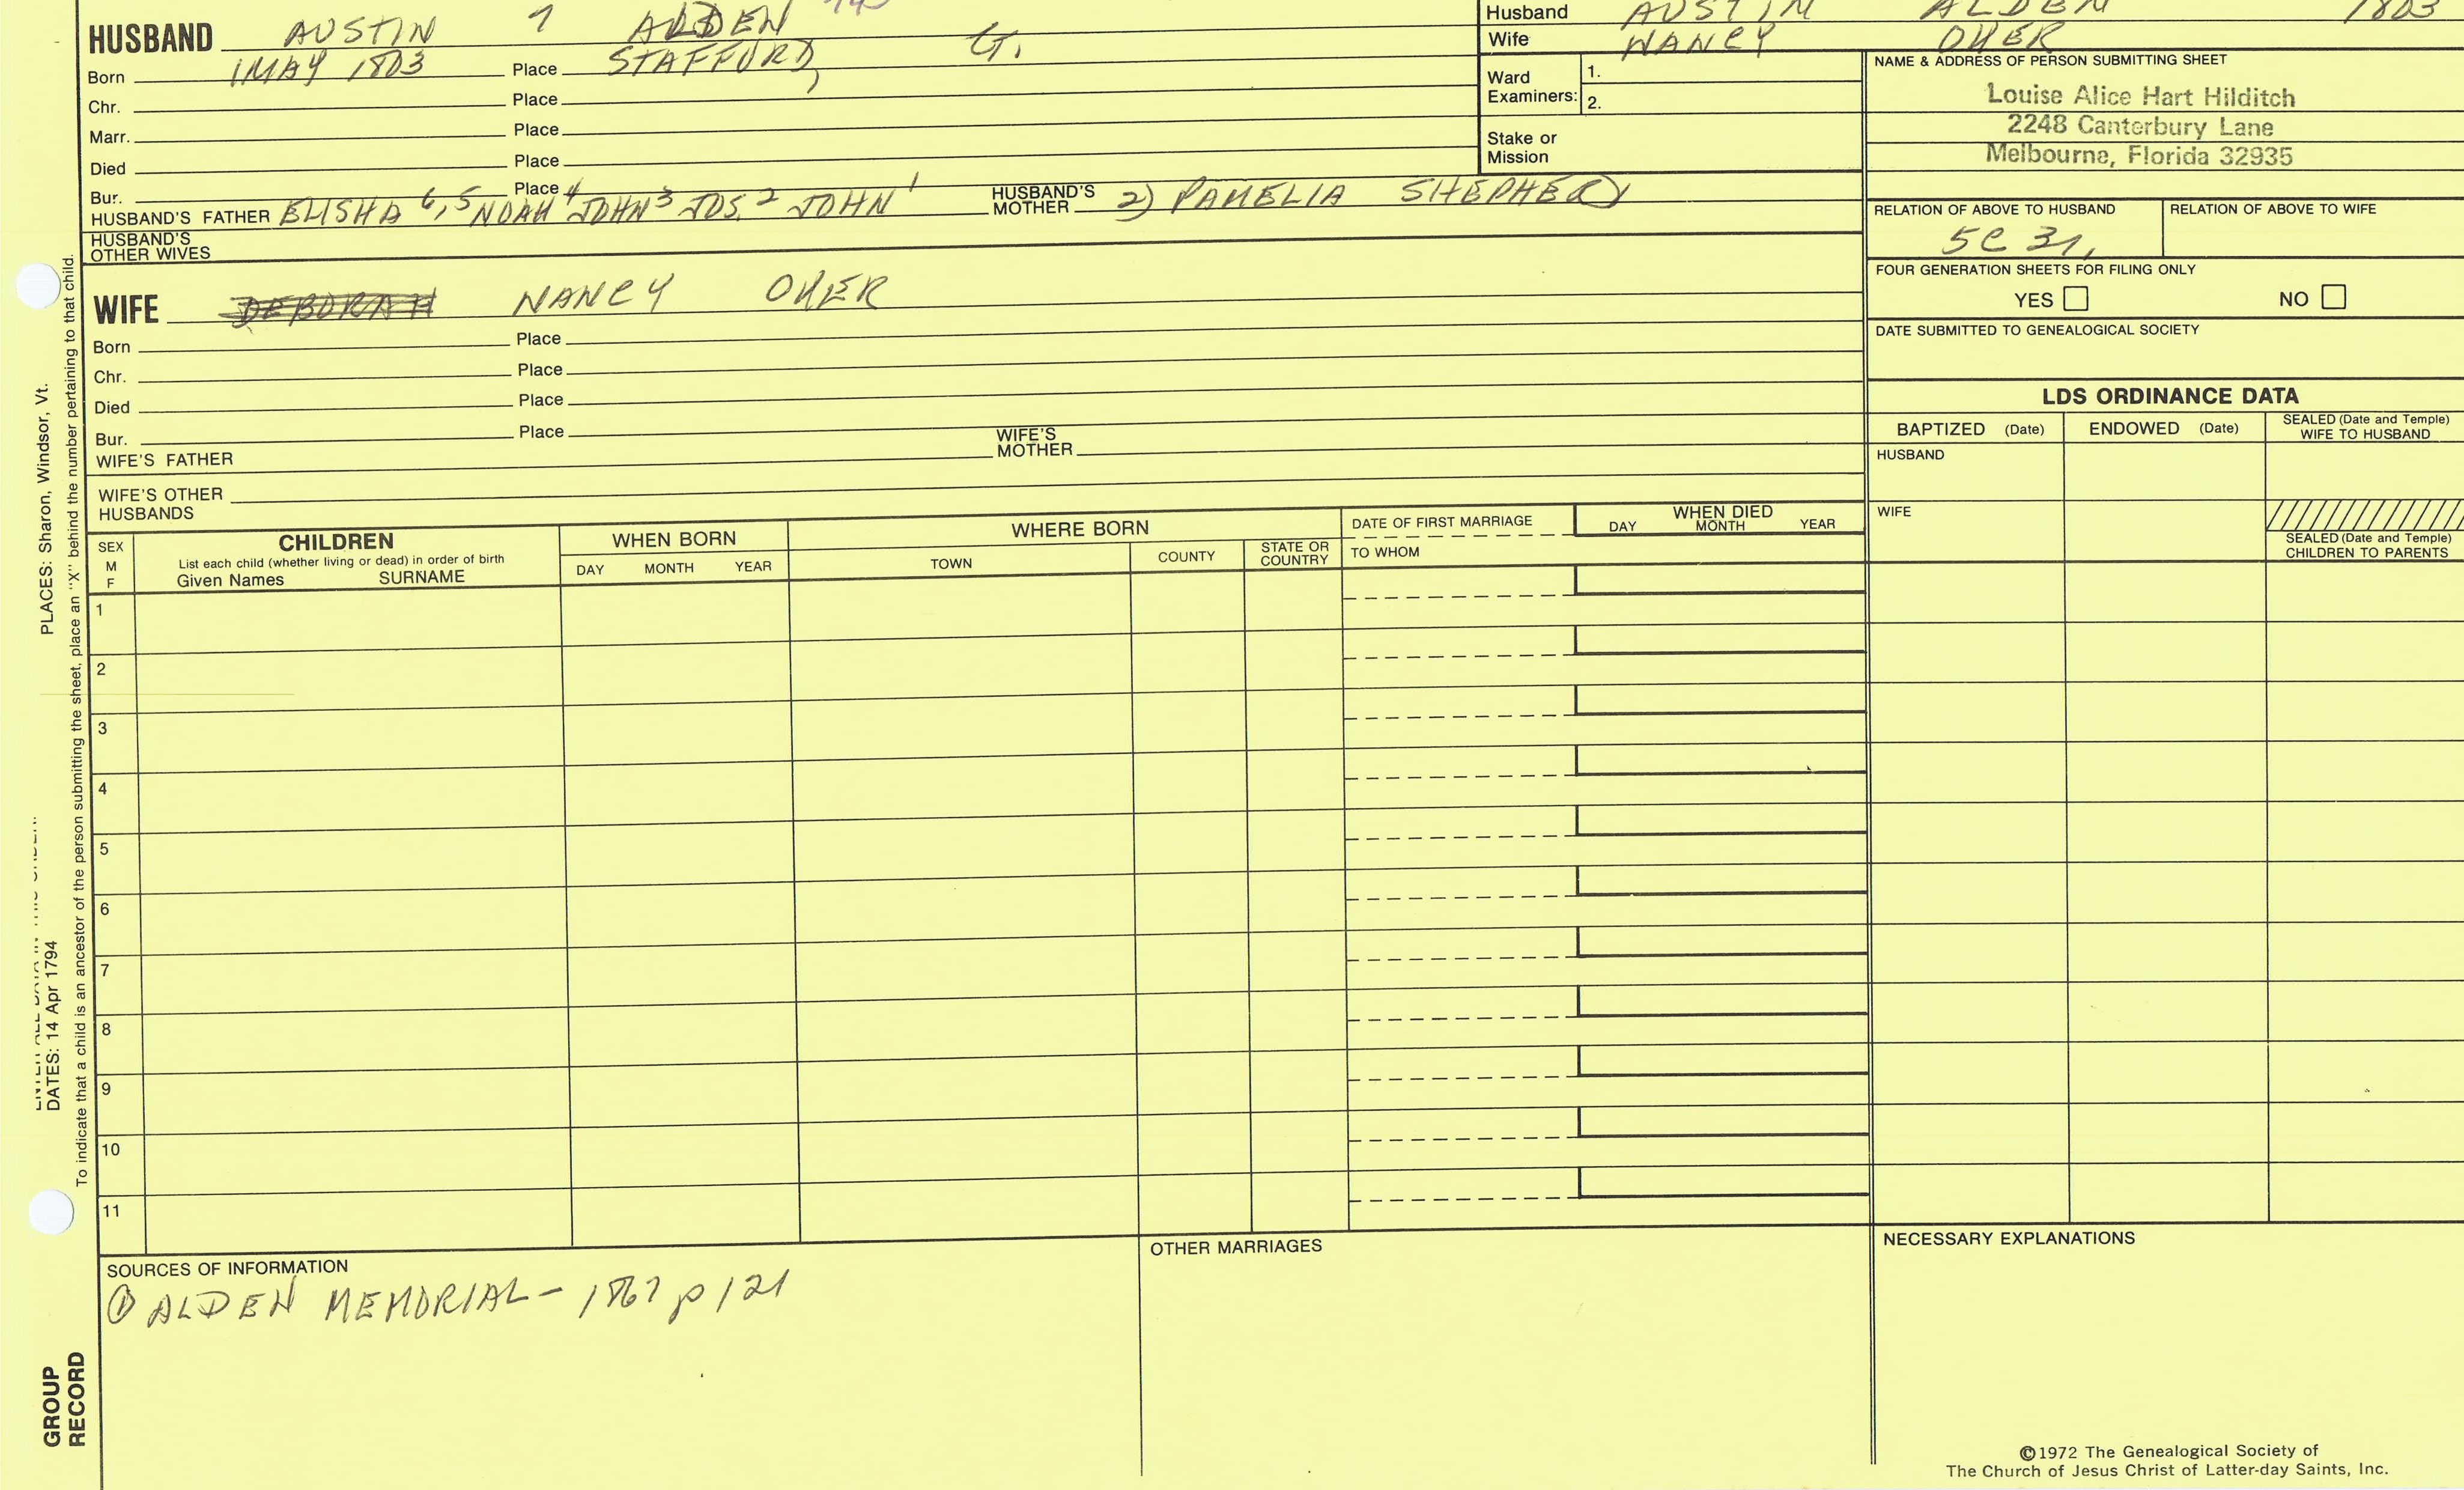 HUSBAND AUSTIN 7 ALDEN
Born 1 MAY 1803 Place STAFFORD, Ct.
Chr. Place
Marr. Place
Died Place
Bur. Place
HUSBAND'S FATHER ELISHA 6, 5 NOAH 4 JOHN 3 JOS. 2 JOHN 1 HUSBAND'S MOTHER 2) PAMELIA SHEPHERD
HUSBAND'S OTHER WIVES
Husband AUSTIN ALDEN 1803
Wife NANCY
Ward Examiners: 1.
2.
Stake or Mission
NAME & ADDRESS OF PERSON SUBMITTING SHEET
Louise Alice Hart Hilditch
2248 Canterbury Lane
Melbourne, Florida 32935
RELATION OF ABOVE TO HUSBAND RELATION OF ABOVE TO WIFE
5C
FOUR GENERATION SHEETS FOR FILING ONLY
YES NO
DATE SUBMITTED TO GENEALOGICAL SOCIETY
WIFE DEBORAH NANCY
Born Place
Chr. Place
Died Place
Bur. Place
WIFE'S FATHER WIFE'S MOTHER
WIFE'S OTHER HUSBANDS
LDS ORDINANCE DATA
BAPTIZED (Date) ENDOWED (Date) SEALED (Date and Temple) WIFE TO HUSBAND
HUSBAND
WIFE
SEALED (Date and Temple) CHILDREN TO PARENTS
SEX M F
CHILDREN
List each child (whether living or dead) in order of birth
Given Names SURNAME
WHEN BORN
DAY MONTH YEAR
WHERE BORN
TOWN COUNTY STATE OR COUNTRY
DATE OF FIRST MARRIAGE
TO WHOM
WHEN DIED
DAY MONTH YEAR
1
2
3
4
5
6
7
8
9
10
11
SOURCES OF INFORMATION
① ALDEN MEMORIAL - 1867 p 121
OTHER MARRIAGES
NECESSARY EXPLANATIONS
©1972 The Genealogical Society of
The Church of Jesus Christ of Latter-day Saints, Inc.
PLACES: Sharon, Windsor, Vt.
DATES: 14 Apr 1794
To indicate that a child is an ancestor of the person submitting the sheet, place an "X" behind the number pertaining to that child.
GROUP
RECORD